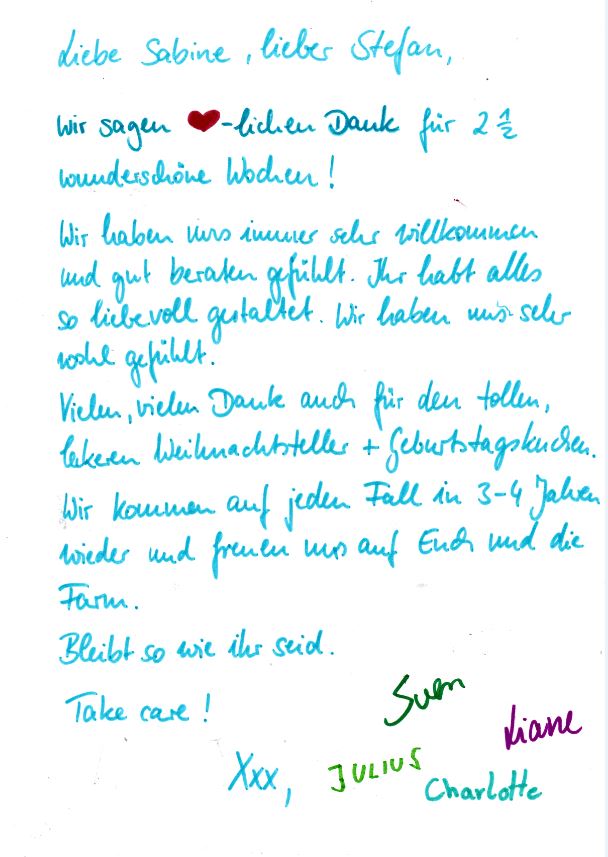 Liebe Sabine, lieber Stefan,
wir sagen ❤-lichen Dank für 2 1/2
wunderschöne Wochen!
Wir haben uns immer sehr willkommen
und gut beraten gefühlt. Ihr habt alles
so liebevoll gestaltet. Wir haben uns sehr
wohl gefühlt.
Vielen, vielen Dank auch für den tollen,
lekeren Weihnachtsteller + Geburtstagskuchen.
Wir kommen auf jeden Fall in 3-4 Jahren
wieder und freuen uns auf Euch und die
Farm.
Bleibt so wie ihr seid.
Take care!
Sven
Liane
Xxx, JULIUS
Charlotte